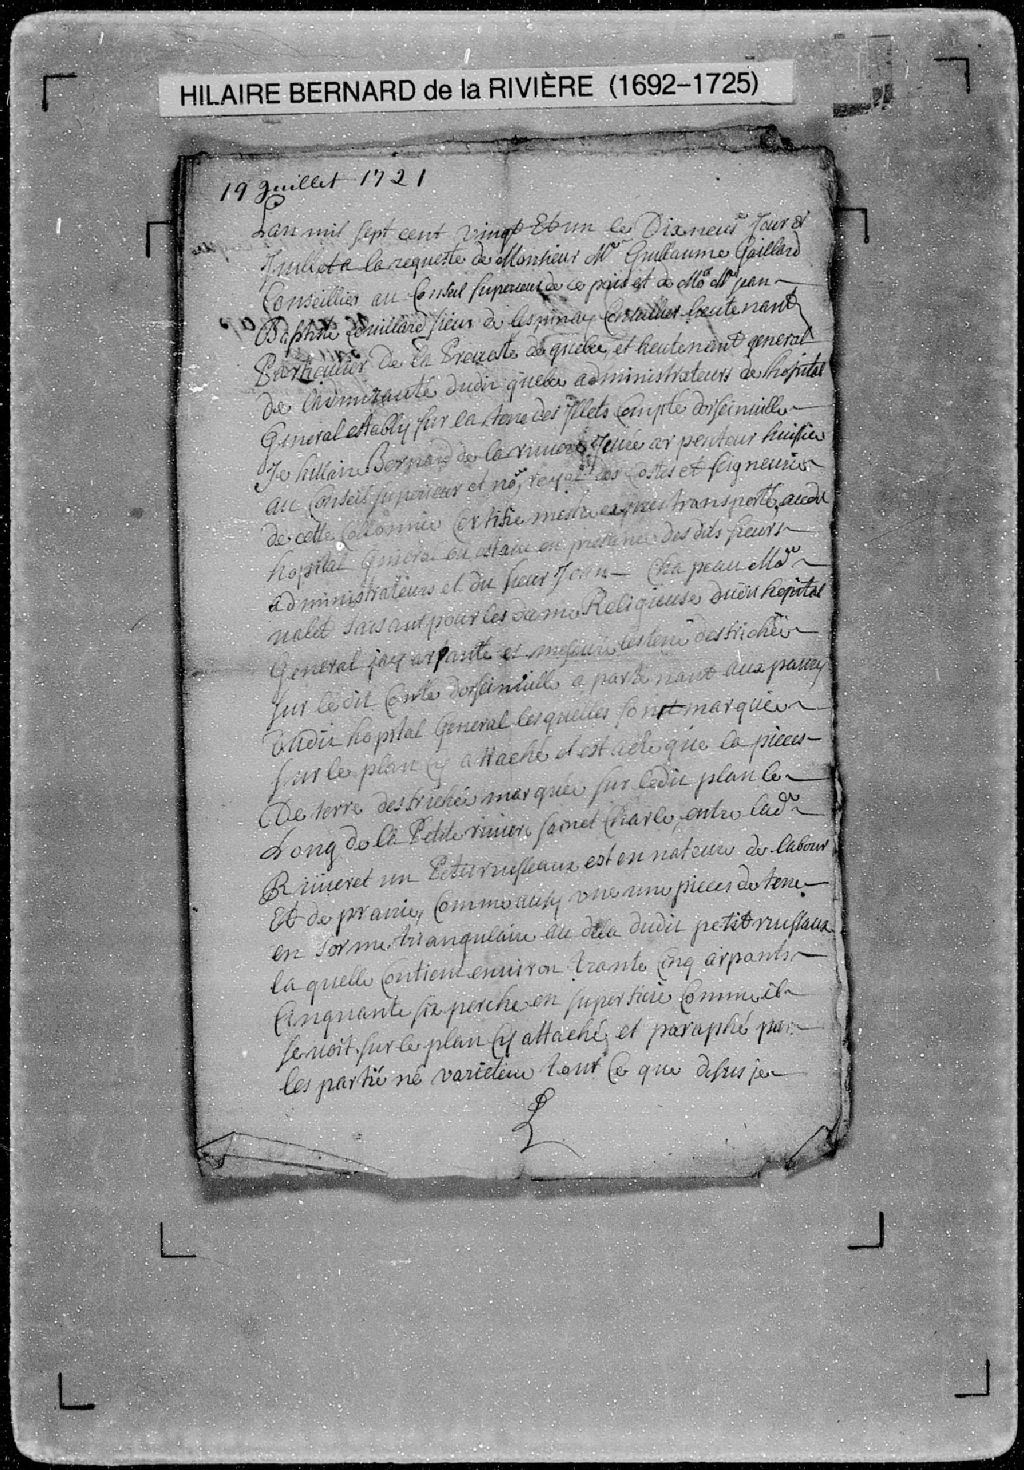 HILAIRE BERNARD de la RIVIÈRE (1692–1725)
19 Juillet 1721
Lan mil sept cent vingt Et un les Dixneuf Jour de
Juillet a la requeste de Monsieur Mr Guillaume Gaillard
Conseillier au Conseil superieur de ce païs et de Mr Mr jean
Baptiste Couillard sieur de lespinay Conseiller lieutenant
Particulier de la Prevosté de quebec et lieutenant general
de lamirauté dudit quebec administrateurs de lhopital
General establly sur la terre des Illets Compté dorseinville
Je hillaire Bernard de la riviere Juré arpenteur huissier
au Conseil superieur et nore royal des Costes et seigneurie
de cette Collonnie Certifie mestre exprès transporté audit
hopital General ou estant en presence des dits sieurs
administrateurs et du sieur Jean Chapeau
valet faisant pour les dame Religieuse dudit hopital
General jay arpanté et mesuré les terre destrichée
sur ledit Conte dorseinville apartenant aux pauvre
dudit hopital General lesquelles sont marquée
sur le plan cy attaché et est que la pieces
De terre destrichée marquée sur ledit plan le
Long de la Petite riviere sainct Charle, entre lade
Riviere et un Petit ruisseaux est en nateure de labour
Et de prairie, Comme aussy une pieces de terre
en forme triangulaire au dela dudit petit ruissaux
la quelle Contient environ trante Cinq arpants
Cinquante six perche en superficie Comme il
se voit sur le plan cy attaché et paraphé par
les partie ne varietur tout Ce que desus je